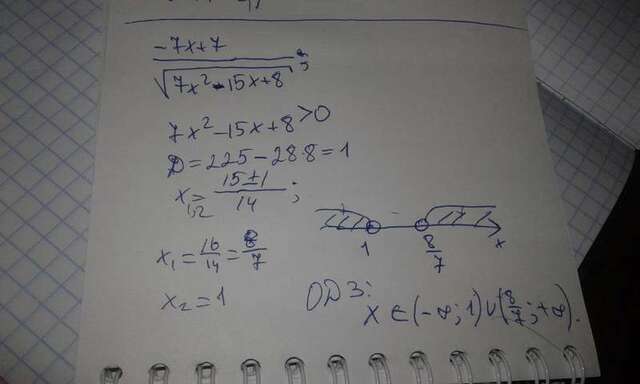 -7x+7
√7x²-15x+8 ;
7x²-15x+8>0
D=225-28·8=1
x₁,₂= 15±1
14 ;
x₁= 16/14 = 8/7
1 8/7 x
x₂=1
ОДЗ:
x∈(-∞;1)∪(8/7;+∞).